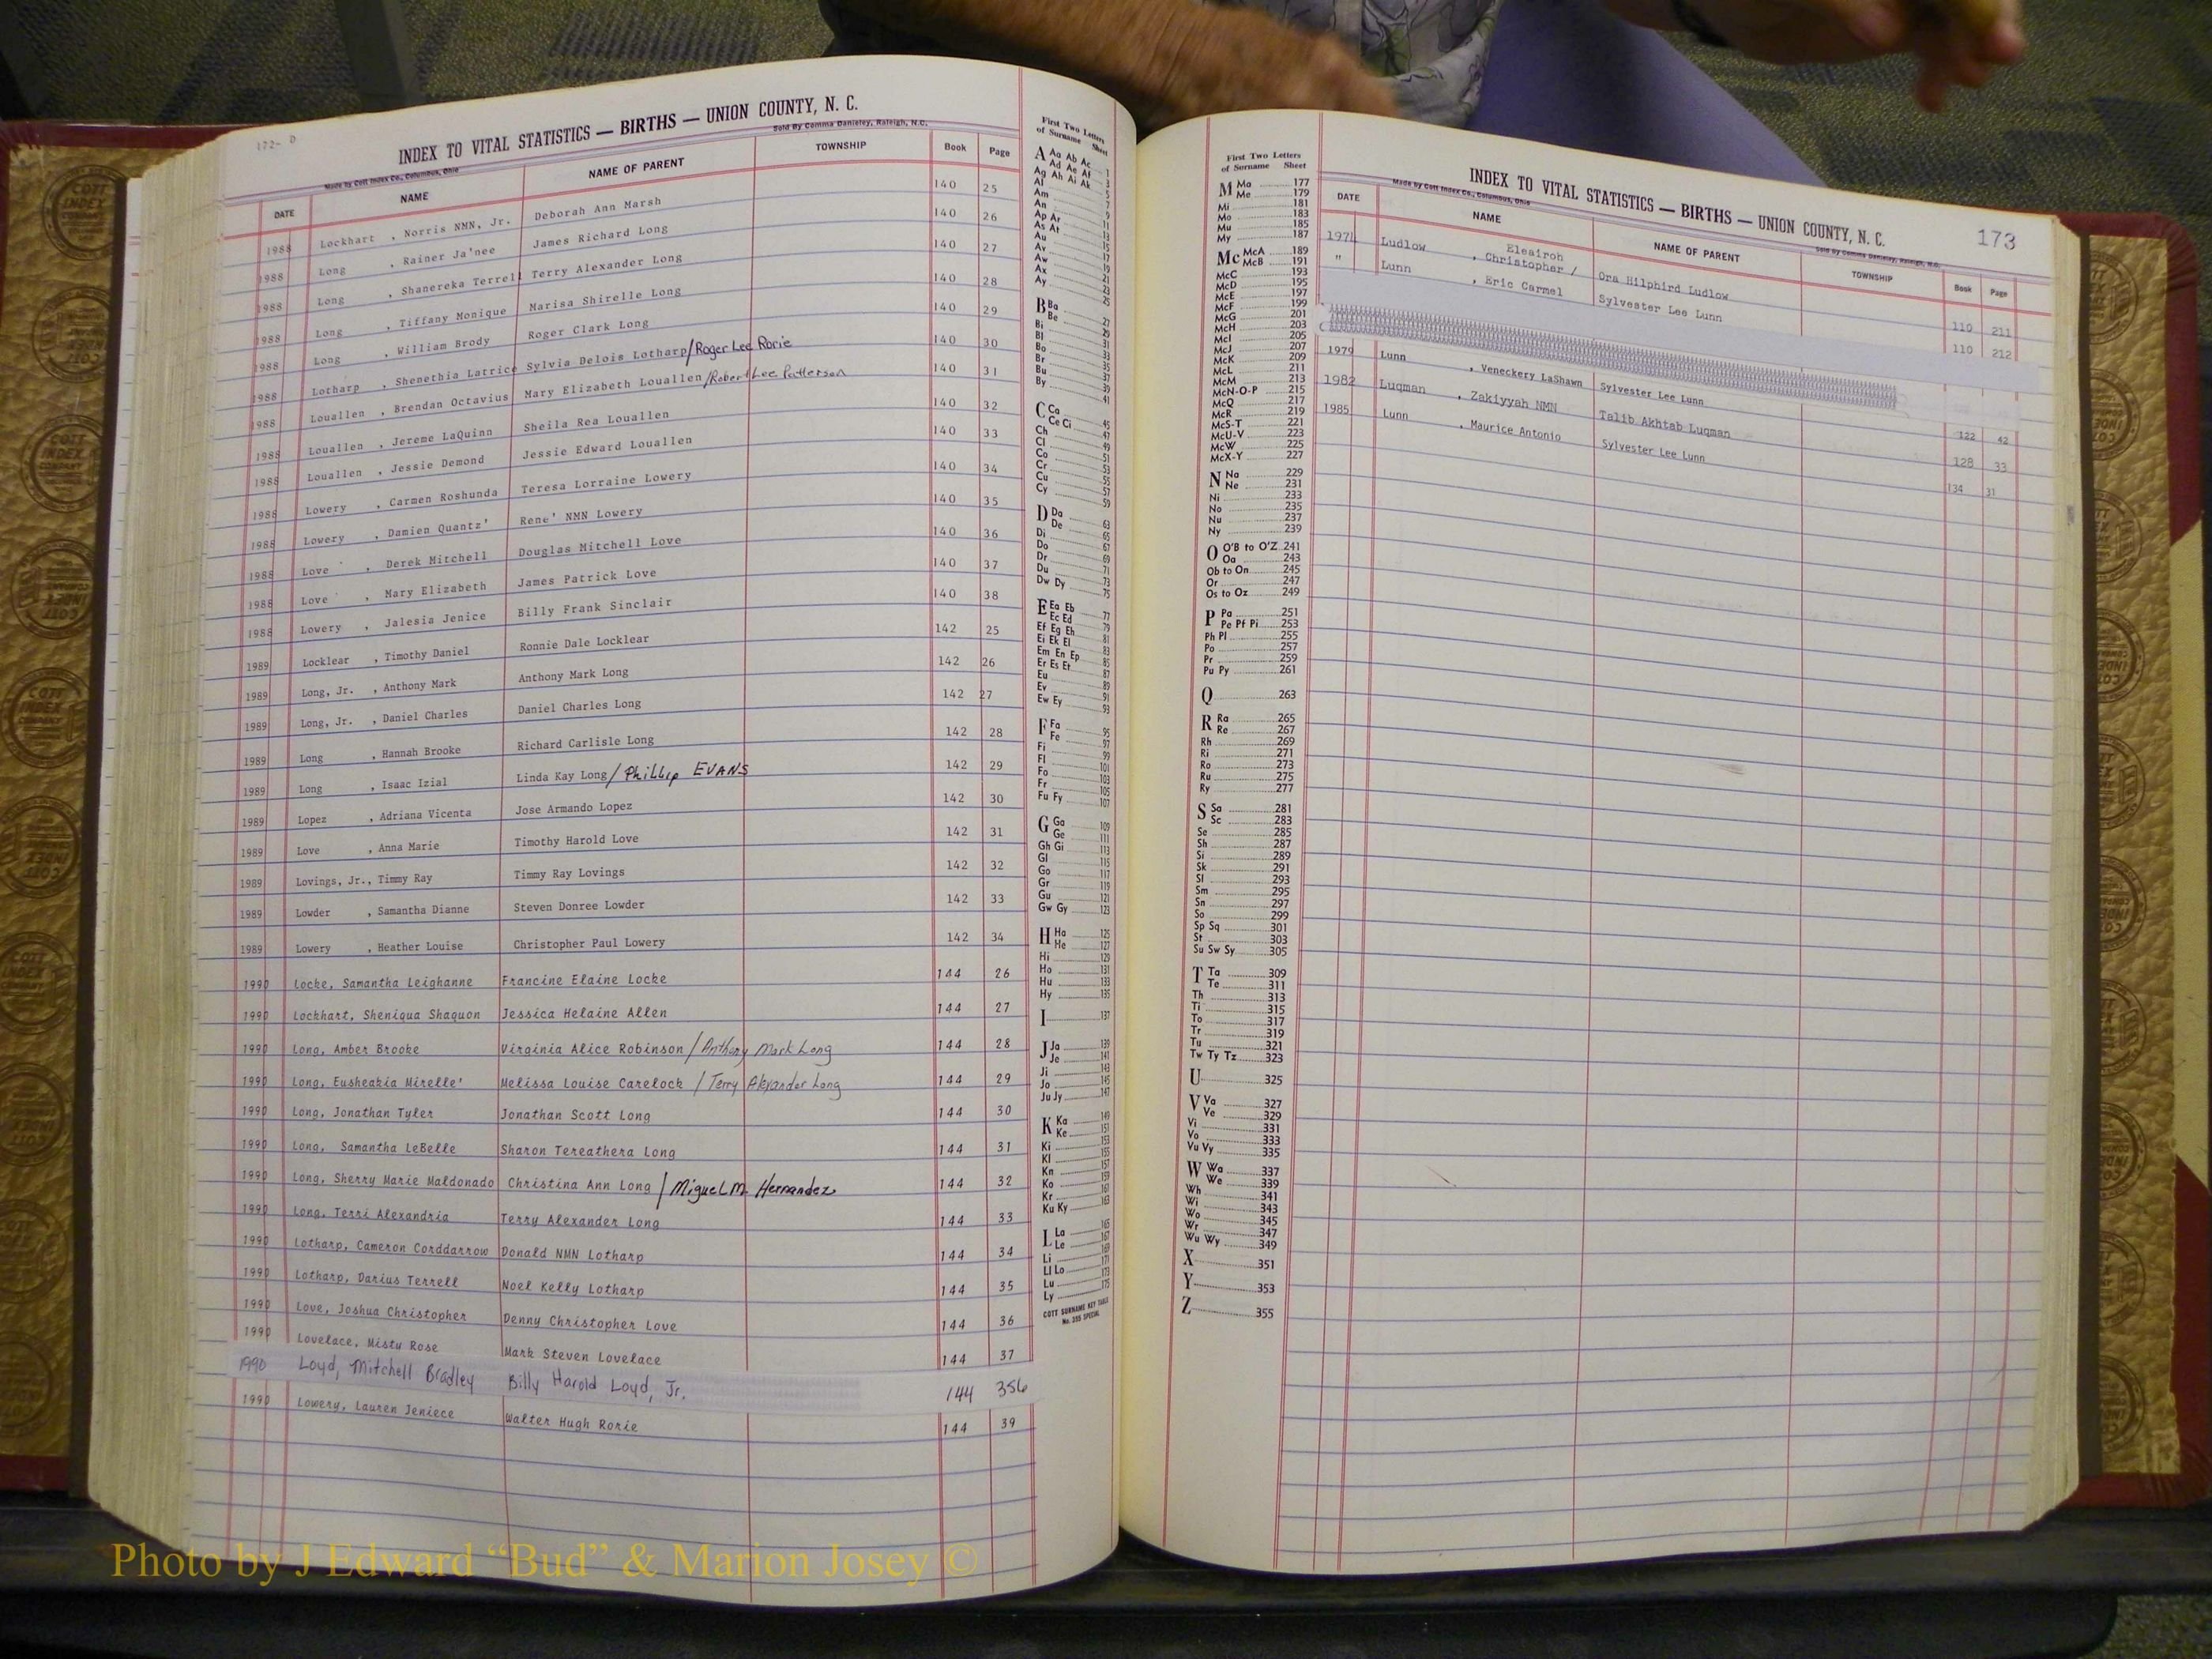 172- D
INDEX TO VITAL STATISTICS — BIRTHS — UNION COUNTY, N. C.
Made by Cott Index Co., Columbus, Ohio Sold By Comma Danieley, Raleigh, N.C.
DATE NAME NAME OF PARENT TOWNSHIP Book Page
1988 Lockhart , Norris NMN, Jr. Deborah Ann Marsh 140 25
1988 Long , Rainer Ja'nee James Richard Long 140 26
1988 Long , Shanereka Terrell Terry Alexander Long 140 27
1988 Long , Tiffany Monique Marisa Shirelle Long 140 28
1988 Long , William Brody Roger Clark Long 140 29
1988 Lotharp , Shenethia Latrice Sylvia Delois Lotharp/Roger Lee Rorie 140 30
1988 Louallen , Brendan Octavius Mary Elizabeth Louallen/Robert Lee Patterson 140 31
1988 Louallen , Jereme LaQuinn Sheila Rea Louallen 140 32
1988 Louallen , Jessie Demond Jessie Edward Louallen 140 33
1988 Lowery , Carmen Roshunda Teresa Lorraine Lowery 140 34
1988 Lowery , Damien Quantz' Rene' NMN Lowery 140 35
1988 Love , Derek Mitchell Douglas Mitchell Love 140 36
1988 Love , Mary Elizabeth James Patrick Love 140 37
1988 Lowery , Jalesia Jenice Billy Frank Sinclair 140 38
1989 Locklear , Timothy Daniel Ronnie Dale Locklear 142 25
1989 Long, Jr. , Anthony Mark Anthony Mark Long 142 26
1989 Long, Jr. , Daniel Charles Daniel Charles Long 142 27
1989 Long , Hannah Brooke Richard Carlisle Long 142 28
1989 Long , Isaac Izial Linda Kay Long/Phillip EVANS 142 29
1989 Lopez , Adriana Vicenta Jose Armando Lopez 142 30
1989 Love , Anna Marie Timothy Harold Love 142 31
1989 Lovings, Jr., Timmy Ray Timmy Ray Lovings 142 32
1989 Lowder , Samantha Dianne Steven Donree Lowder 142 33
1989 Lowery , Heather Louise Christopher Paul Lowery 142 34
1990 Locke, Samantha Leighanne Francine Elaine Locke 144 26
1990 Lockhart, Sheniqua Shaquon Jessica Helaine Allen 144 27
1990 Long, Amber Brooke Virginia Alice Robinson/Anthony Mark Long 144 28
1990 Long, Eusheakia Mirelle' Melissa Louise Carelock /Terry Alexander Long 144 29
1990 Long, Jonathan Tyler Jonathan Scott Long 144 30
1990 Long, Samantha LeBelle Sharon Tereathera Long 144 31
1990 Long, Sherry Marie Maldonado Christina Ann Long /Miguel M. Hernandez 144 32
1990 Long, Terri Alexandria Terry Alexander Long 144 33
1990 Lotharp, Cameron Corddarrow Donald NMN Lotharp 144 34
1990 Lotharp, Darius Terrell Noel Kelly Lotharp 144 35
1990 Love, Joshua Christopher Denny Christopher Love 144 36
1990 Lovelace, Misty Rose Mark Steven Lovelace 144 37
1990 Loyd, Mitchell Bradley Billy Harold Loyd, Jr. 144 356
1990 Lowery, Lauren Jeniece Walter Hugh Rorie 144 39
First Two Letters
of Surname Sheet
A Aa Ab Ac 1
Ad Ae Af 3
Ag Ah Ai Ak 5
Al 7
Am 9
An 11
Ap Ar 13
As At 15
Au 17
Av 19
Aw 21
Ax 23
Ay 25
B Ba 27
Be 29
Bi 31
Bl 33
Bo 35
Br 37
Bu 39
By 41
C Ca 45
Ce Ci 47
Ch 49
Cl 51
Co 53
Cr 55
Cu 57
Cy 59
D Da 63
De 65
Di 67
Do 69
Dr 71
Du 73
Dw Dy 75
E Ea Eb 77
Ec Ed 79
Ef Eg Eh 81
Ei Ek El 83
Em En Ep 85
Er Es Et 87
Eu 89
Ev 91
Ew Ey 93
F Fa 95
Fe 97
Fi 99
Fl 101
Fo 103
Fr 105
Fu Fy 107
G Ga 109
Ge 111
Gh Gi 113
Gl 115
Go 117
Gr 119
Gu 121
Gw Gy 123
H Ha 125
He 127
Hi 129
Ho 131
Hu 133
Hy 135
I 137
J Ja 139
Je 141
Ji 143
Jo 145
Ju Jy 147
K Ka 149
Ke 151
Ki 153
Kl 155
Kn 157
Ko 159
Kr 161
Ku Ky 163
L La 165
Le 167
Li 169
Ll Lo 171
Lu 173
Ly 175
COTT SURNAME KEY TABLE
No. 355 SPECIAL
First Two Letters
of Surname Sheet
M Ma 177
Me 179
Mi 181
Mo 183
Mu 185
My 187
Mc McA 189
McB 191
McC 193
McD 195
McE 197
McF 199
McG 201
McH 203
McI 205
McJ 207
McK 209
McL 211
McM 213
McN-O-P 215
McQ 217
McR 219
McS-T 221
McU-V 223
McW 225
McX-Y 227
N Na 229
Ne 231
Ni 233
No 235
Nu 237
Ny 239
O O'B to O'Z 241
Oa 243
Ob to On 245
Or 247
Os to Oz 249
P Pa 251
Pe Pf Pi 253
Ph Pl 255
Po 257
Pr 259
Pu Py 261
Q 263
R Ra 265
Re 267
Rh 269
Ri 271
Ro 273
Ru 275
Ry 277
S Sa 281
Sc 283
Se 285
Sh 287
Si 289
Sk 291
Sl 293
Sm 295
Sn 297
So 299
Sp Sq 301
St 303
Su Sw Sy 305
T Ta 309
Te 311
Th 313
Ti 315
To 317
Tr 319
Tu 321
Tw Ty Tz 323
U 325
V Va 327
Ve 329
Vi 331
Vo 333
Vu Vy 335
W Wa 337
We 339
Wh 341
Wi 343
Wo 345
Wr 347
Wu Wy 349
X 351
Y 353
Z 355
INDEX TO VITAL STATISTICS — BIRTHS — UNION COUNTY, N. C. 173
Made by Cott Index Co., Columbus, Ohio Sold By Comma Danieley, Raleigh, N.C.
DATE NAME NAME OF PARENT TOWNSHIP Book Page
1974 Ludlow , Christopher / Eleairoh Ora Hilphird Ludlow 110 211
" Lunn , Eric Carmel Sylvester Lee Lunn 110 212
1979 Lunn , Veneckery LaShawn Sylvester Lee Lunn 122 42
1982 Luqman , Zakiyyah NMN Talib Akhtab Luqman 128 33
1985 Lunn , Maurice Antonio Sylvester Lee Lunn 134 31
Photo by J Edward “Bud” & Marion Josey ©